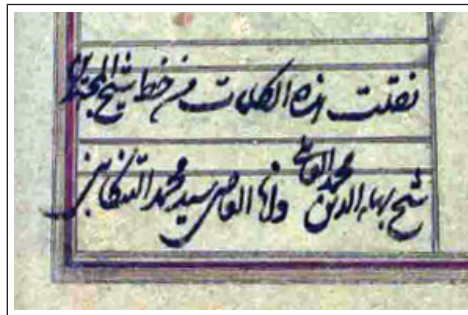 نقلت هذه الكلمات من خط شيخ المجتهدين
شيخ بهاء الدين محمد العاملي وانا العاصي سيد محمد التنكابني